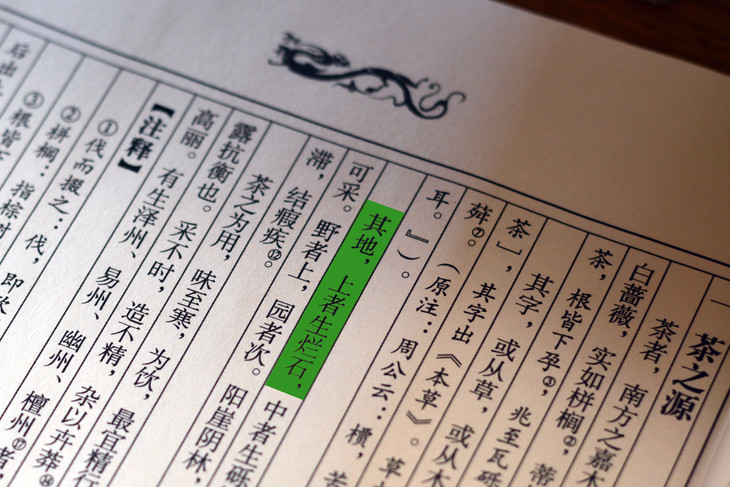 一 茶之源
茶者，南方之嘉木
白蔷薇，实如栟榈②，蒂
茶，根皆下孕③，兆至瓦砾
其字，或从草，或从木
茶」，其字出《本草》。草
荈⑦。（原注：周公云：槚，苦
耳。』）。
其地，上者生烂石，中者生砾
可采。野者上，园者次。阳崖阴林，
滞，结瘕疾⑫。
茶之为用，味至寒，为饮，最宜精行
露抗衡也。采不时，造不精，杂以卉莽⑭
高丽。有生泽州、易州、幽州、檀州⑰者，
【注释】
①伐而掇之：伐，即砍
②栟榈：指棕
③根皆下
后出